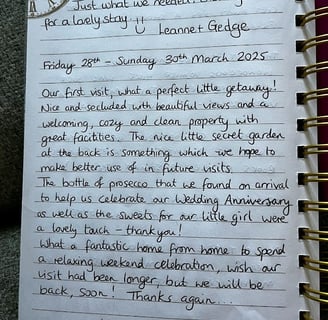 Just what we needed.
for a lovely stay :) Leanne + Gedge
Friday 28th - Sunday 30th March 2025
Our first visit, what a perfect little getaway!
Nice and secluded with beautiful views and a
welcoming, cozy and clean property with
great facilities. The nice little secret garden
at the back is something which we hope to
make better use of in future visits.
The bottle of prosecco that we found on arrival
to help us celebrate our Wedding Anniversary
as well as the sweets for our little girl were
a lovely touch - thank you!
What a fantastic home from home to spend
a relaxing weekend celebration, wish our
visit had been longer, but we will be
back, soon! Thanks again...